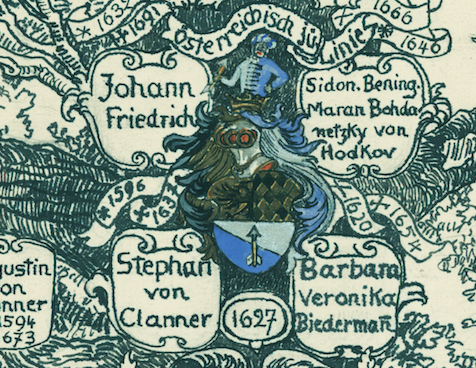 1635
1691
1666
1646
österreichisch
Linie
Johann
Friedrich
Sidon. Bening.
Maran Bohda
netzky von
Hodkov
*1596
*1620
†1654
gustin
on
nner
1594
1673
Stephan
von
Clanner
1627
Barbara
Veronika
Biedermañ